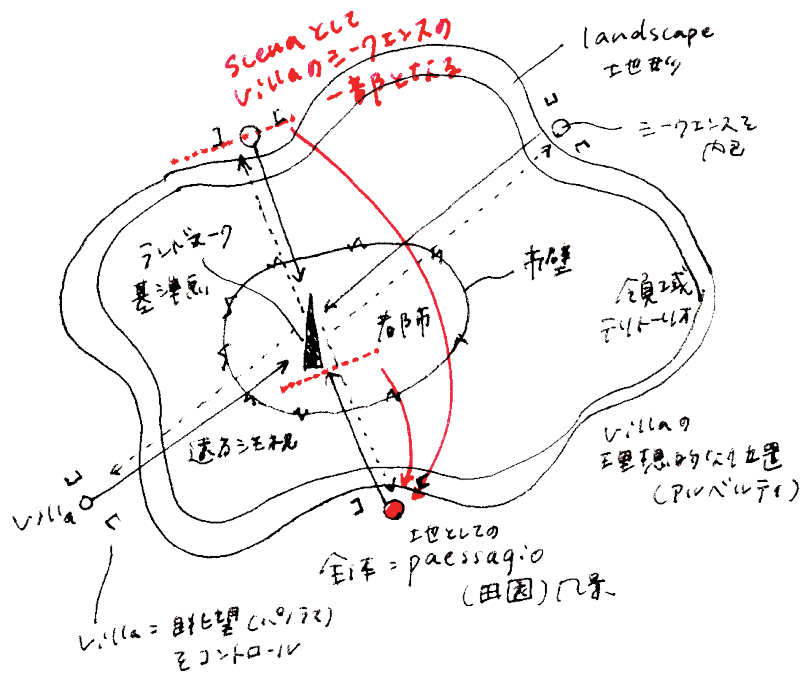 scenaとして
villaのシークエンスの
一部となる
landscape
土地形
シークエンスを
内包
ランドマーク
基準点
市壁
都市
領域
テリトーリオ
遠方シモ視
villaの
理想的な位置
(アルベルティ)
villa
土地としての
全体=paessagio
(田園)風景
villa=眺望(パノラマ)
をコントロール